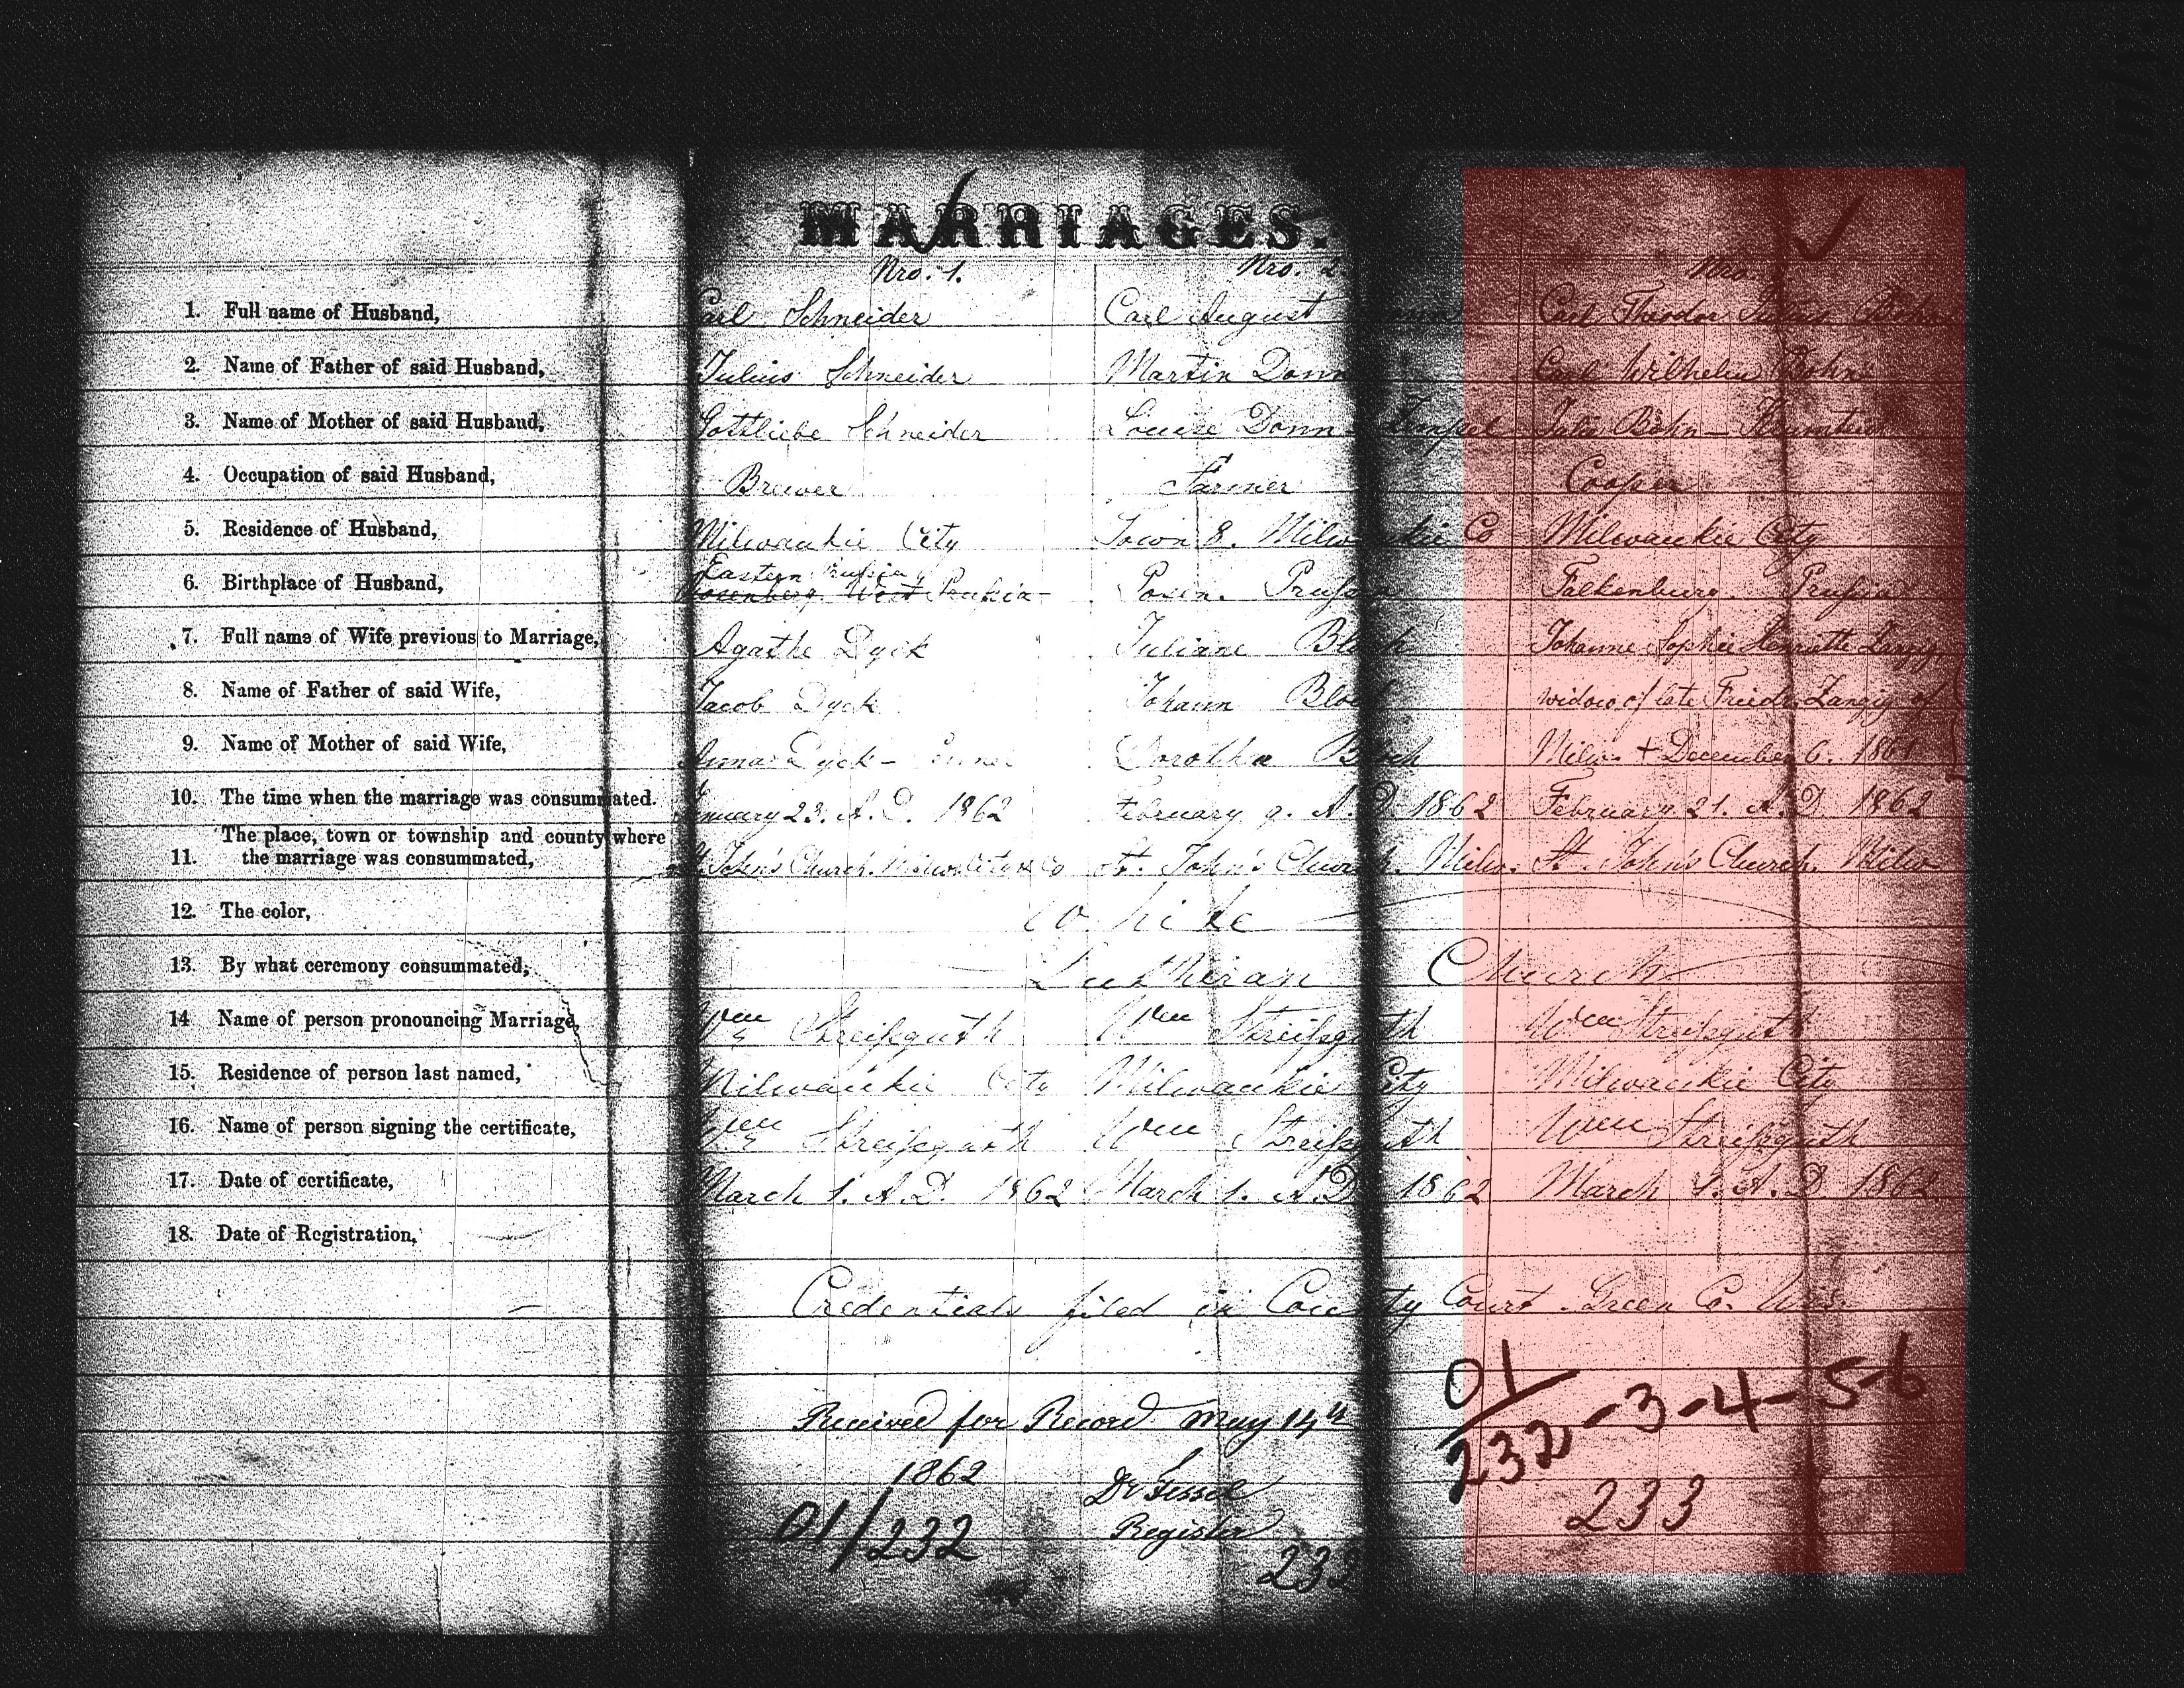 MARRIAGES.
Nro. 1. Nro. 2. Nro.
1. Full name of Husband, Carl Schneider Carl August Carl Theodor Julius
2. Name of Father of said Husband, Julius Schneider Martin Donn Carl Wilhelm Böhn
3. Name of Mother of said Husband, Gottliebe Schneider Louise Donn Julia Böhn
4. Occupation of said Husband, Brewer Farmer Cooper
5. Residence of Husband, Milwaukie City Town 8. Milwaukie Co Milwaukie City
Eastern Prussia
6. Birthplace of Husband, Rosenberg West Prussia Posen. Prussia Falkenburg. Prussia
7. Full name of Wife previous to Marriage, Agathe Dyck Juliane Bloch Johanne Sophie Henriette Zanzig
8. Name of Father of said Wife, Jacob Dyck Johann Bloch widow of late Friedr. Zanzig of
9. Name of Mother of said Wife, Anna Dyck Dorothea Bloch Milw. + December 6. 1861
10. The time when the marriage was consummated. January 23. A. D. 1862 February 9. A. D. 1862 February 21. A. D. 1862
The place, town or township and county where
11. the marriage was consummated, St. John's Church. Milw. City & Co St. John's Church. Milw. St. John's Church. Milw
12. The color, White
13. By what ceremony consummated, Lutheran Church
14 Name of person pronouncing Marriage, Wm Streissguth Wm Streissguth Wm Streissguth
15. Residence of person last named, Milwaukie City Milwaukie City Milwaukie City
16. Name of person signing the certificate, Wm Streissguth Wm Streissguth Wm Streissguth
17. Date of certificate, March 1. A. D. 1862 March 1. A. D. 1862 March 1. A. D. 1862
18. Date of Registration,
Credentials filed in County Court. Green Co. Wis.
01/232-3-4-5-6
Received for Record May 14th
1862 Dr Fessel
Register
01/232 232 233